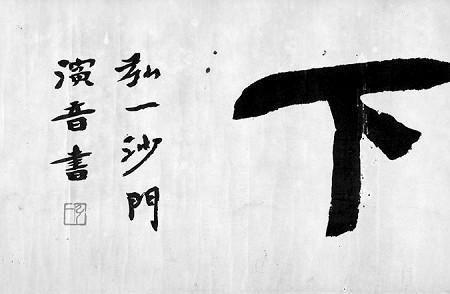 下
弘一沙門
演音書